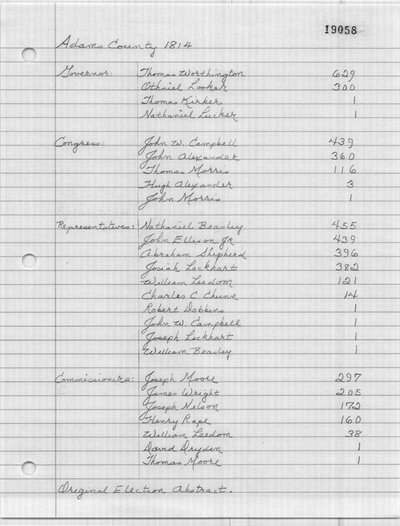 19058
Adams County 1814
Governor: Thomas Worthington 629
Othniel Looker 300
Thomas Kirker 1
Nathaniel Lucker 1
Congress: John W. Campbell 439
John Alexander 360
Thomas Morris 116
Hugh Alexander 3
John Morris 1
Representatives: Nathaniel Beasley 455
John Ellison Jr 439
Abraham Shepherd 396
Josiah Lockhart 382
William Leedom 121
Charles C. 14
Robert Dobbins 1
John W. Campbell 1
Joseph Lockhart 1
William Beasley 1
Commissioners: Joseph Moore 297
James Wright 205
Joseph Nelson 172
Henry Rape 160
William Leedom 38
David Dryden 1
Thomas Moore 1
Original Election Abstract.